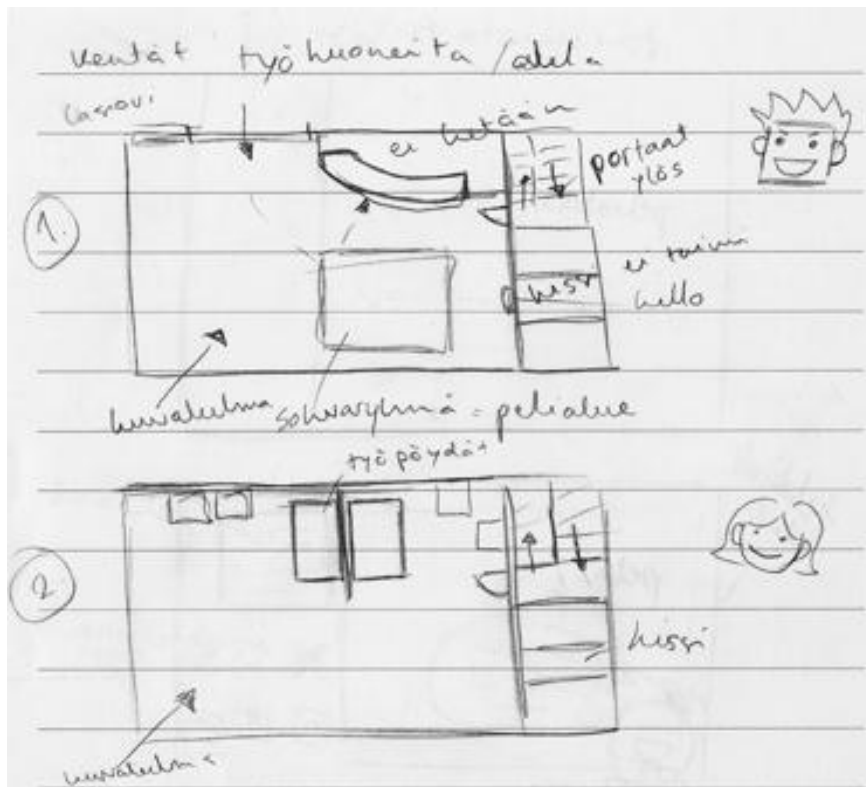 Kentät työhuoneita / aula
lasiovi
ei ketään
portaat
ylös
1.
hissi
ei toimi
hello
kuvakulma
sohvaryhmä = pelialue
työpöydät
2
hissi
kuvakulma